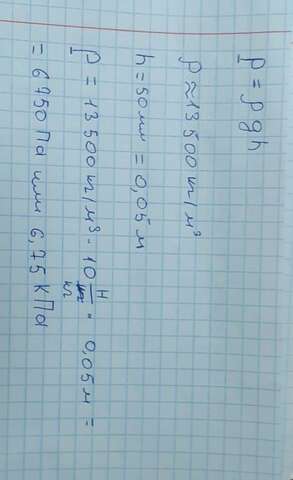 p = ρgh
ρ ≈ 13 500 кг/м³
h = 50 мм = 0,05 м
p = 13 500 кг/м³ · 10 Н/кг · 0,05 м =
= 6750 Па или 6,75 кПа